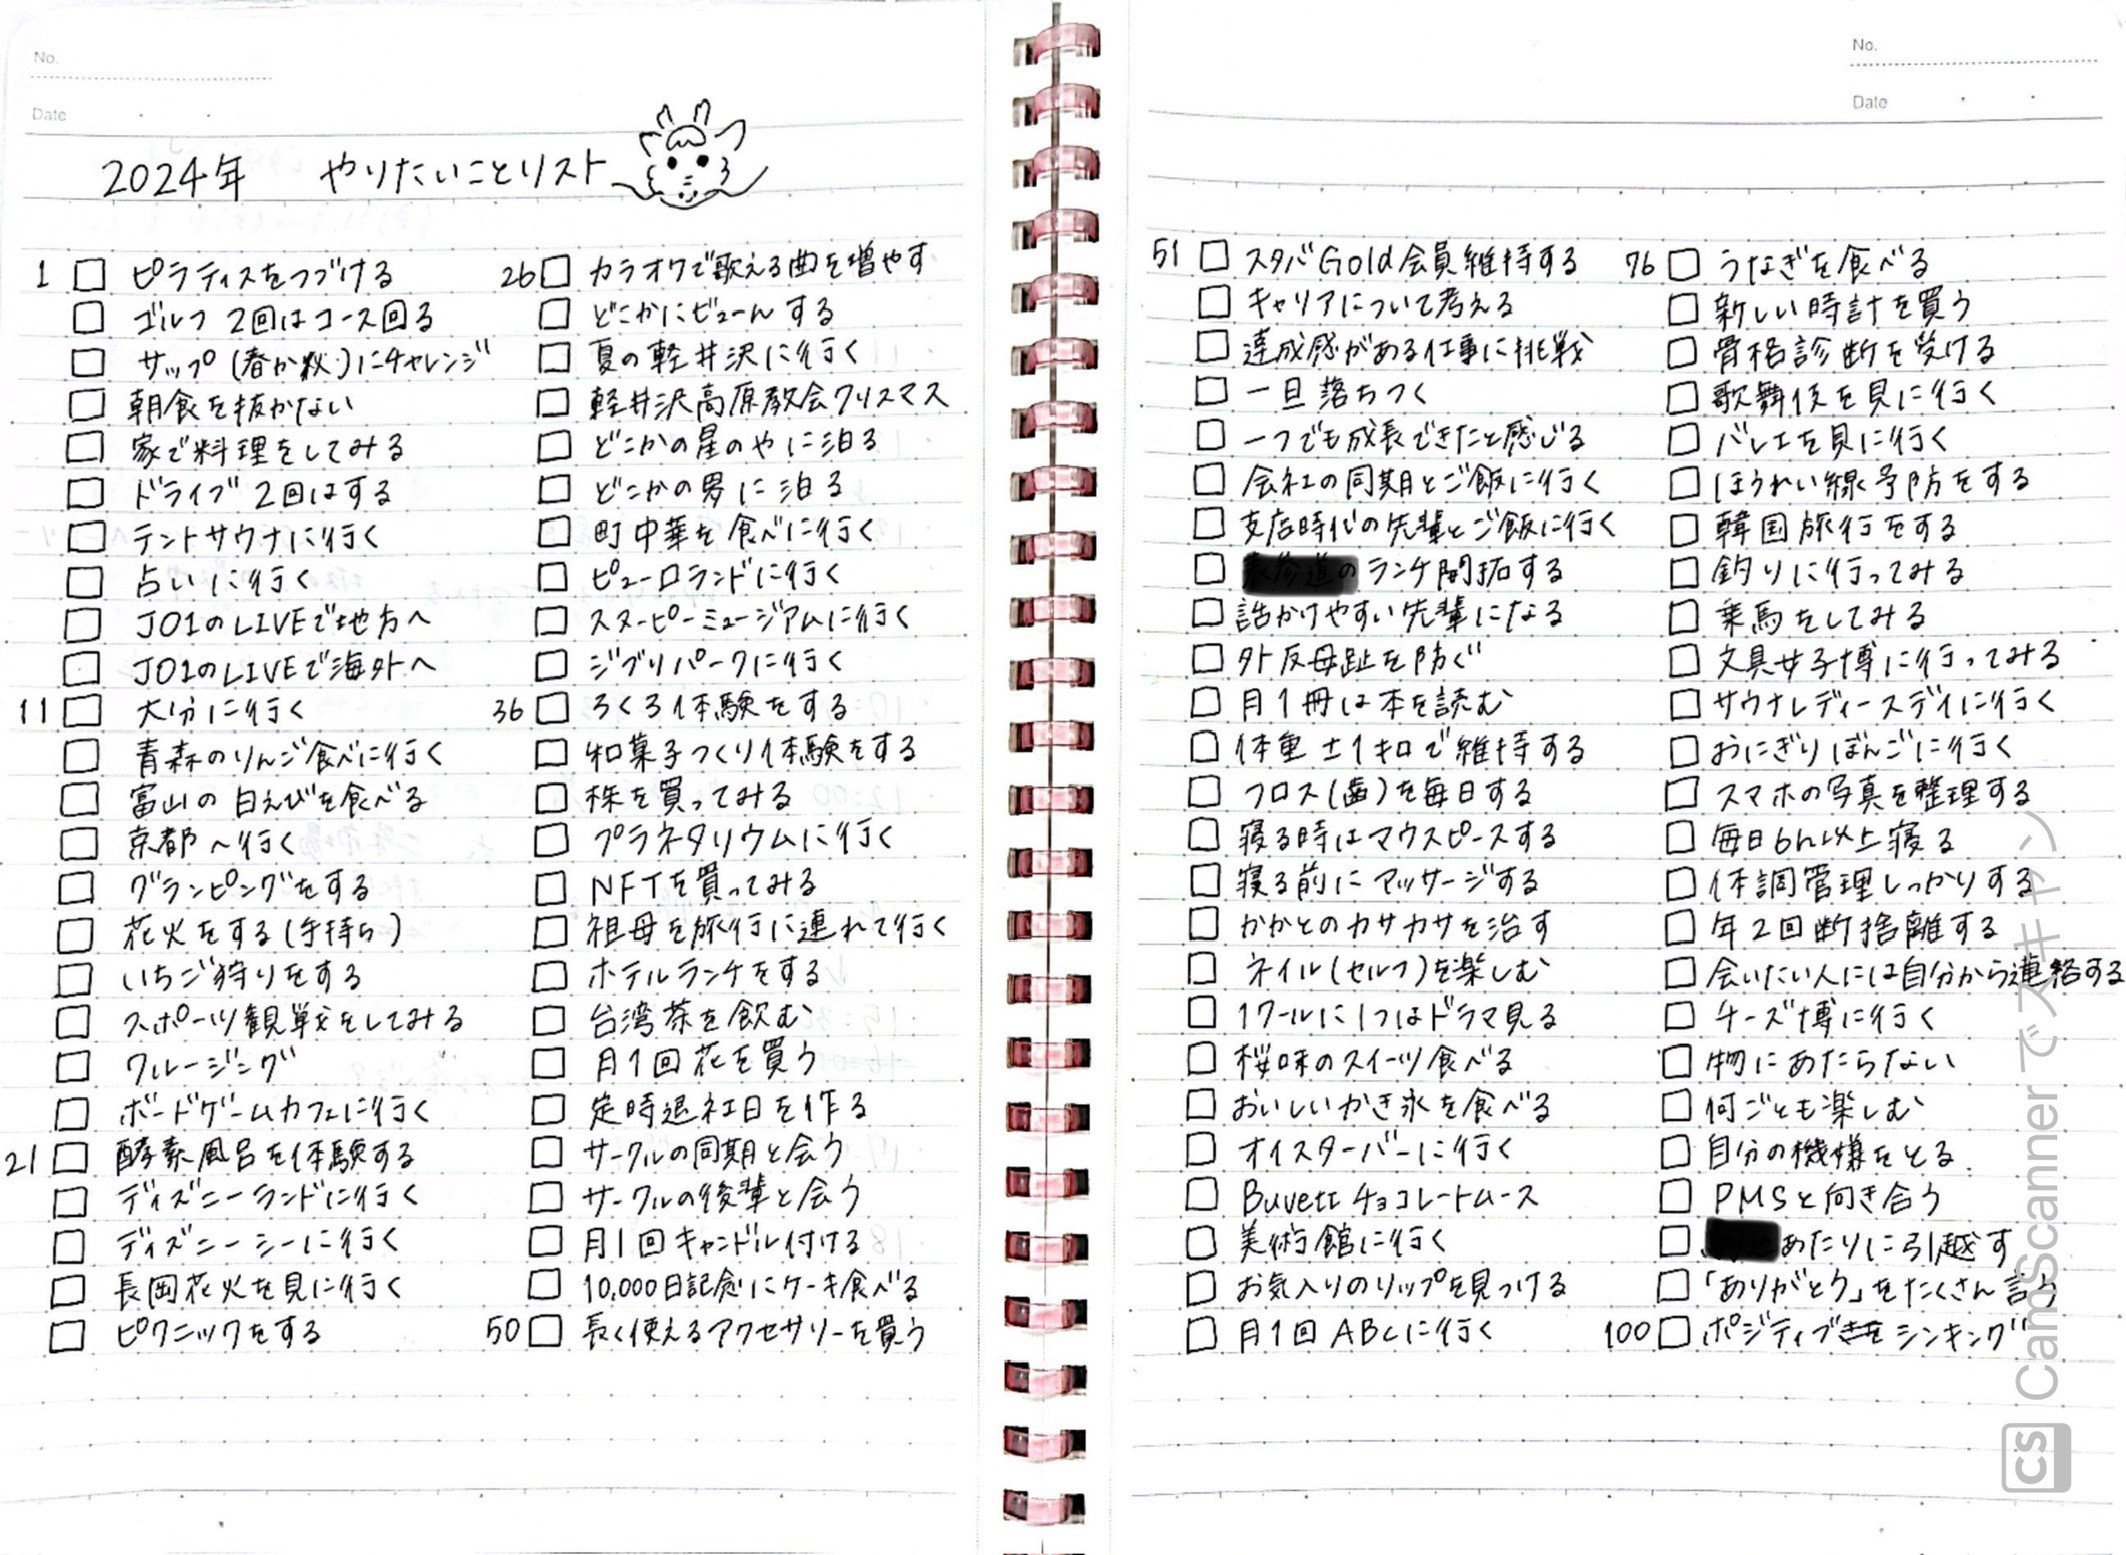 No.
Date
2024年 やりたいことリスト
1 ピラティスをつづける
ゴルフ 2回はコース回る
サップ(春か秋)にチャレンジ
朝食を抜かない
家で料理をしてみる
ドライブ 2回はする
テントサウナに行く
占いに行く
JO1のLIVEで地方へ
JO1のLIVEで海外へ
11 大分に行く
青森のりんご食べに行く
富山の白えびを食べる
京都へ行く
グランピングをする
花火をする(手持ち)
いちご狩りをする
スポーツ観戦をしてみる
クルージング
ボードゲームカフェに行く
21 酵素風呂を体験する
ディズニーランドに行く
ディズニーシーに行く
長岡花火を見に行く
ピクニックをする
26 カラオケで歌える曲を増やす
どこかにビューんする
夏の軽井沢に行く
軽井沢高原教会クリスマス
どこかの星のやに泊る
どこかの界に泊る
町中華を食べに行く
ピューロランドに行く
スヌーピーミュージアムに行く
ジブリパークに行く
36 ろくろ体験をする
和菓子つくり体験をする
株を買ってみる
プラネタリウムに行く
NFTを買ってみる
祖母を旅行に連れて行く
ホテルランチをする
台湾茶を飲む
月1回花を買う
定時退社日を作る
サークルの同期と会う
サークルの後輩と会う
月1回キャンドル付ける
10,000日記念にケーキ食べる
50 長く使えるアクセサリーを買う
No.
Date
51 スタバGold会員維持する
キャリアについて考える
達成感がある仕事に挑戦
一旦落ちつく
一つでも成長できたと感じる
会社の同期とご飯に行く
支店時代の先輩とご飯に行く
ランチ開拓する
話かけやすい先輩になる
外反母趾を防ぐ
月1冊は本を読む
体重±1キロで維持する
フロス(歯)を毎日する
寝る時はマウスピースする
寝る前にマッサージする
かかとのカサカサを治す
ネイル(セルフ)を楽しむ
1クールに1つはドラマ見る
桜味のスイーツ食べる
おいしいかき氷を食べる
オイスターバーに行く
Buvett チョコレートムース
美術館に行く
お気入りのリップを見つける
月1回 ABCに行く
76 うなぎを食べる
新しい時計を買う
骨格診断を受ける
歌舞伎を見に行く
バレエを見に行く
ほうれい線予防をする
韓国旅行をする
釣りに行ってみる
乗馬をしてみる
文具女子博に行ってみる
サウナレディースデイに行く
おにぎりぼんごに行く
スマホの写真を整理する
毎日6h以上寝る
体調管理しっかりする
年2回断捨離する
会いたい人には自分から連絡する
チーズ博に行く
物にあたらない
何ごとも楽しむ
自分の機嫌をとる
PMSと向き合う
あたりに引越す
「ありがとう」をたくさん言う
100 ポジティブシンキング
CS CamScannerでスキャン